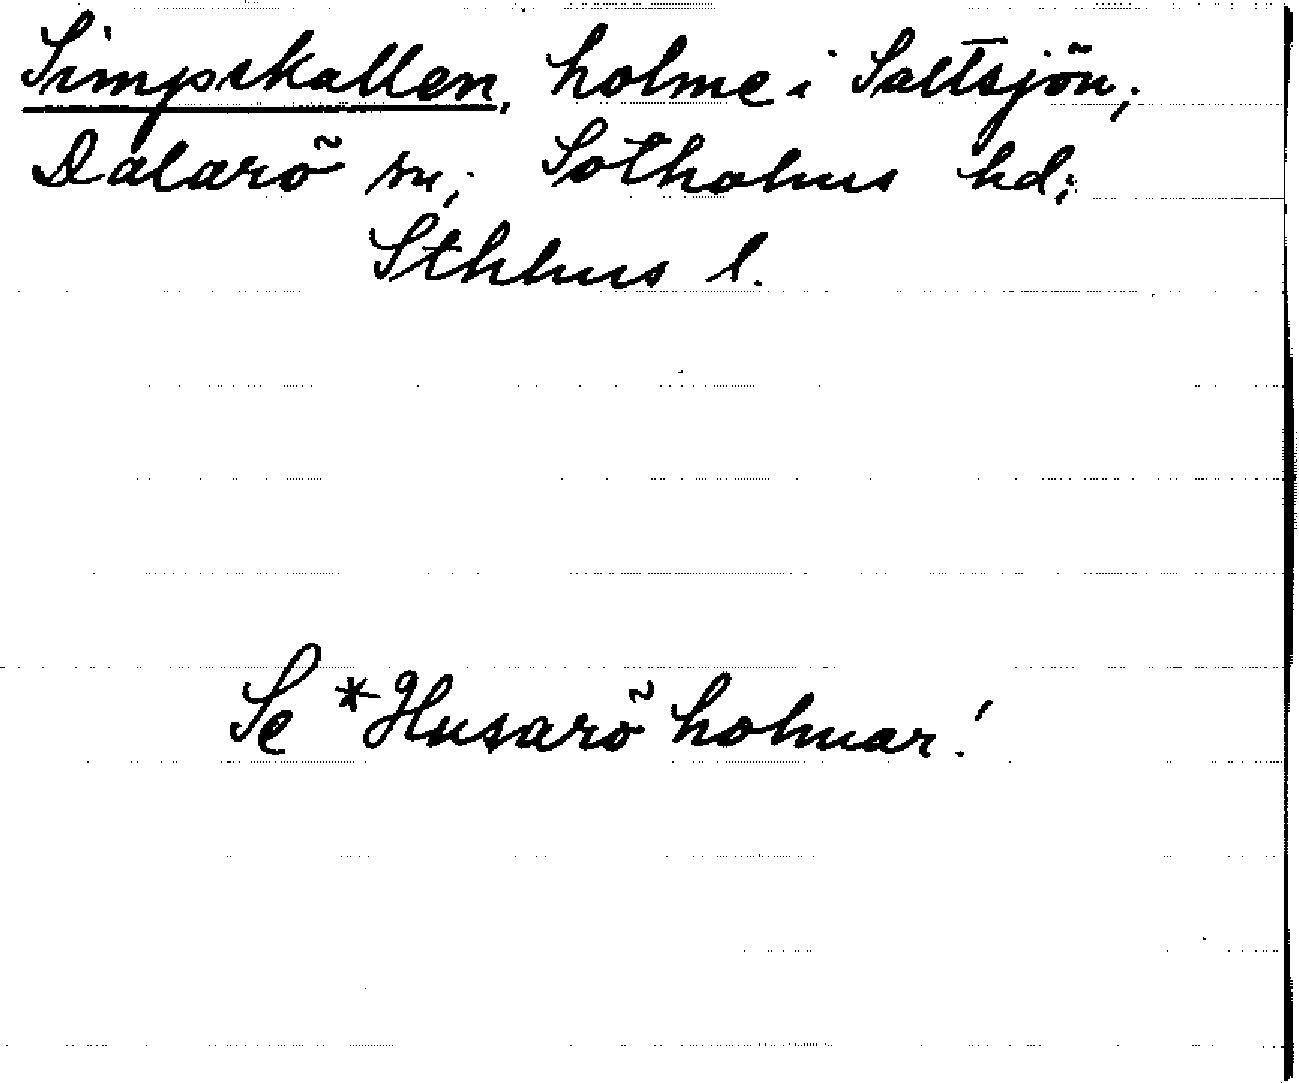 Simpskallen, holme i Saltsjön;
Dalarö sn; Sotholms hd;
Sthlms l.
Se *Husarö holmar!